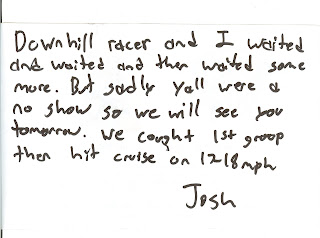 Downhill racer and I waited
and waited and then waited some
more. But sadly yall were a
no show so we will see you
tomorrow. We caught 1st group
then hit cruise on 17-18mph
Josh